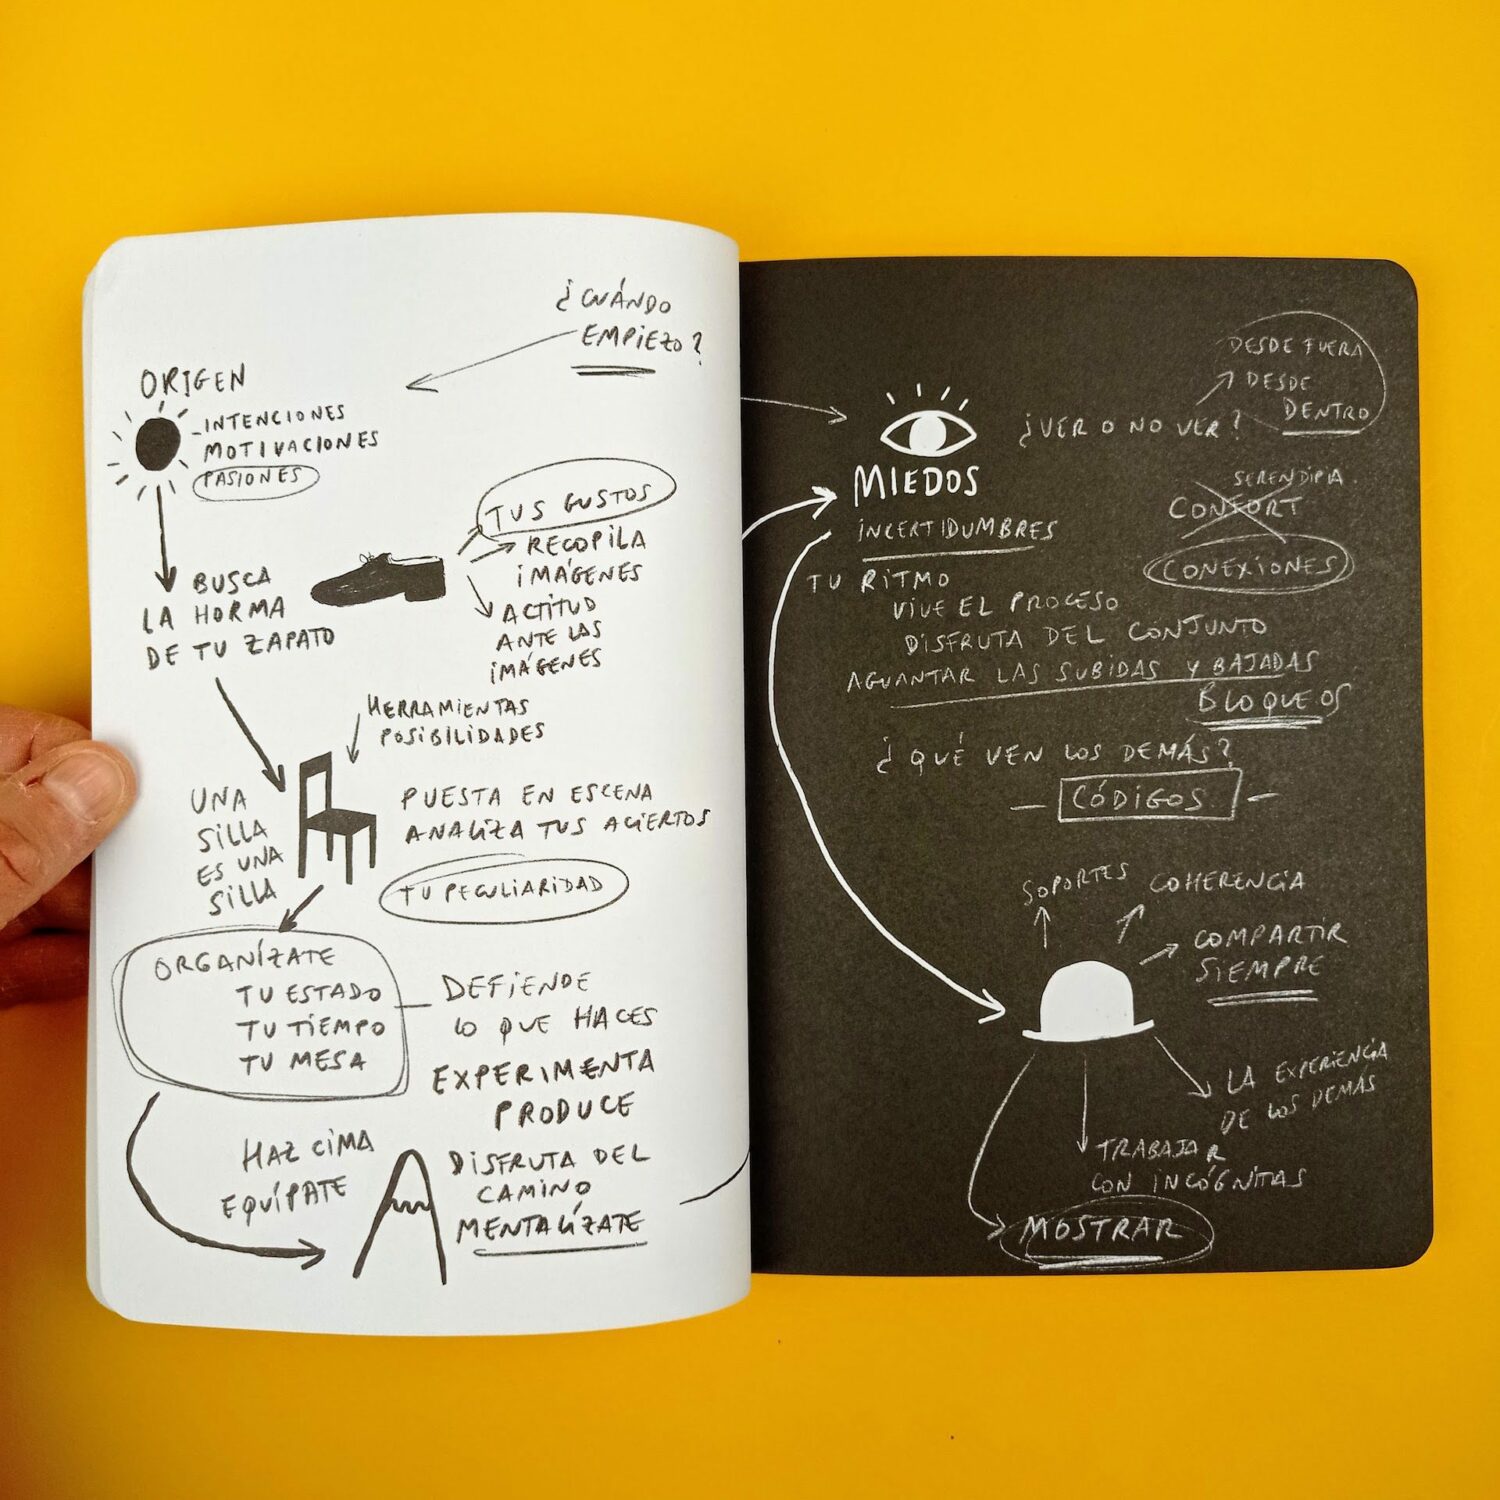 ¿CUÁNDO
EMPIEZO?
ORIGEN
INTENCIONES
MOTIVACIONES
PASIONES
BUSCA
LA HORMA
DE TU ZAPATO
TUS GUSTOS
RECOPILA
IMÁGENES
ACTITUD
ANTE LAS
IMÁGENES
HERRAMIENTAS
POSIBILIDADES
UNA
SILLA
ES UNA
SILLA
PUESTA EN ESCENA
ANALIZA TUS ACIERTOS
TU PECULIARIDAD
ORGANÍZATE
TU ESTADO
TU TIEMPO
TU MESA
DEFIENDE
LO QUE HACES
EXPERIMENTA
PRODUCE
HAZ CIMA
EQUÍPATE
DISFRUTA DEL
CAMINO
MENTALÍZATE
MIEDOS
INCERTIDUMBRES
¿VER O NO VER?
DESDE FUERA
DESDE
DENTRO
SERENDIPIA
CONFORT
CONEXIONES
TU RITMO
VIVE EL PROCESO
DISFRUTA DEL CONJUNTO
AGUANTAR LAS SUBIDAS Y BAJADAS
BLOQUEOS
¿QUÉ VEN LOS DEMÁS?
CÓDIGOS
SOPORTES
COHERENCIA
COMPARTIR
SIEMPRE
LA EXPERIENCIA
DE LOS DEMÁS
TRABAJAR
CON INCÓGNITAS
MOSTRAR